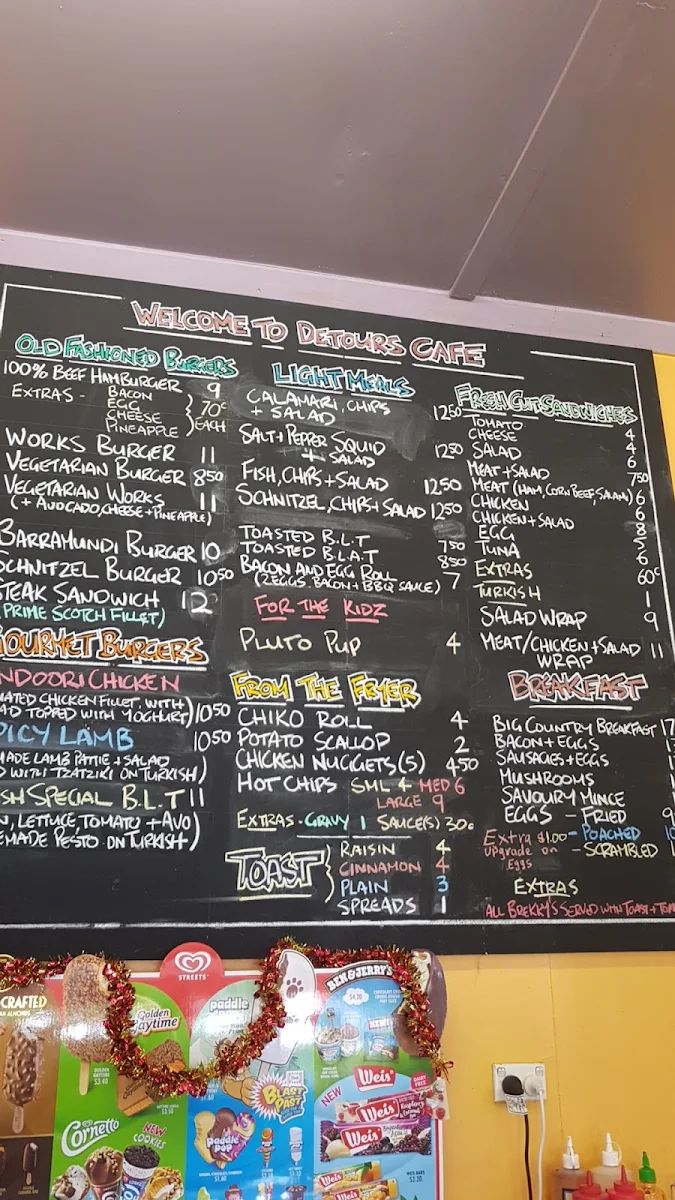 WELCOME TO DETOURS CAFE
OLD FASHIONED BURGERS
100% BEEF HAMBURGER 9
EXTRAS - BACON
EGG
CHEESE
PINEAPPLE
70c
EACH
WORKS BURGER 11
VEGETARIAN BURGER 850
VEGETARIAN WORKS 11
(+ AVOCADO, CHEESE + PINEAPPLE)
BARRAMUNDI BURGER 10
SCHNITZEL BURGER 1050
STEAK SANDWICH 12
(PRIME SCOTCH FILLET)
GOURMET BURGERS
NDOORI CHICKEN
NATED CHICKEN FILLET WITH
AD TOPPED WITH YOGHURT) 1050
PICY LAMB 1050
MADE LAMB PATTIE + SALAD
D WITH TZATZIKI ON TURKISH)
SH SPECIAL B.L.T 11
N, LETTUCE TOMATO + AVO
EMADE PESTO ON TURKISH)
LIGHT MEALS
CALAMARI, CHIPS
+ SALAD 1250
SALT + PEPPER SQUID
+ SALAD 1250
FISH, CHIPS + SALAD 1250
SCHNITZEL, CHIPS + SALAD 1250
TOASTED B.L.T 750
TOASTED B.L.A.T 850
BACON AND EGG ROLL 7
(2 EGGS, BACON + BBQ SAUCE)
FOR THE KIDZ
PLUTO PUP 4
FROM THE FRYER
CHIKO ROLL 4
POTATO SCALLOP 2
CHICKEN NUGGETS (5) 450
HOT CHIPS SML 4 MED 6
LARGE 9
EXTRAS - GRAVY 1 SAUCE(S) 30c
TOAST
RAISIN 4
CINNAMON 4
PLAIN 3
SPREADS 1
FRESH CUT SANDWICHES
TOMATO 4
CHEESE 4
SALAD 6
MEAT + SALAD 750
MEAT (HAM, CORN BEEF, SALAMI) 6
CHICKEN 6
CHICKEN + SALAD 8
EGG 5
TUNA 6
EXTRAS 60c
TURKISH 1
SALAD WRAP 9
MEAT/CHICKEN + SALAD 11
WRAP
BREAKFAST
BIG COUNTRY BREAKFAST 17
BACON + EGGS
SAUSAGES + EGGS
MUSHROOMS
SAVOURY MINCE
EGGS - FRIED
Extra $1.00 - POACHED
upgrade on - SCRAMBLED
Eggs
EXTRAS
ALL BREKKY'S SERVED WITH TOAST + TOM
CRAFTED
STREETS
Golden
Gaytime
Cornetto
NEW
COOKIES
paddle
pop
BLAST
PAST
Paddle
POP
BEN & JERRY'S
$4.20
NEW
Weis
DAIRY
FREE
Weis
Weis
Weis
Weis
WEIS BARS
$3.20